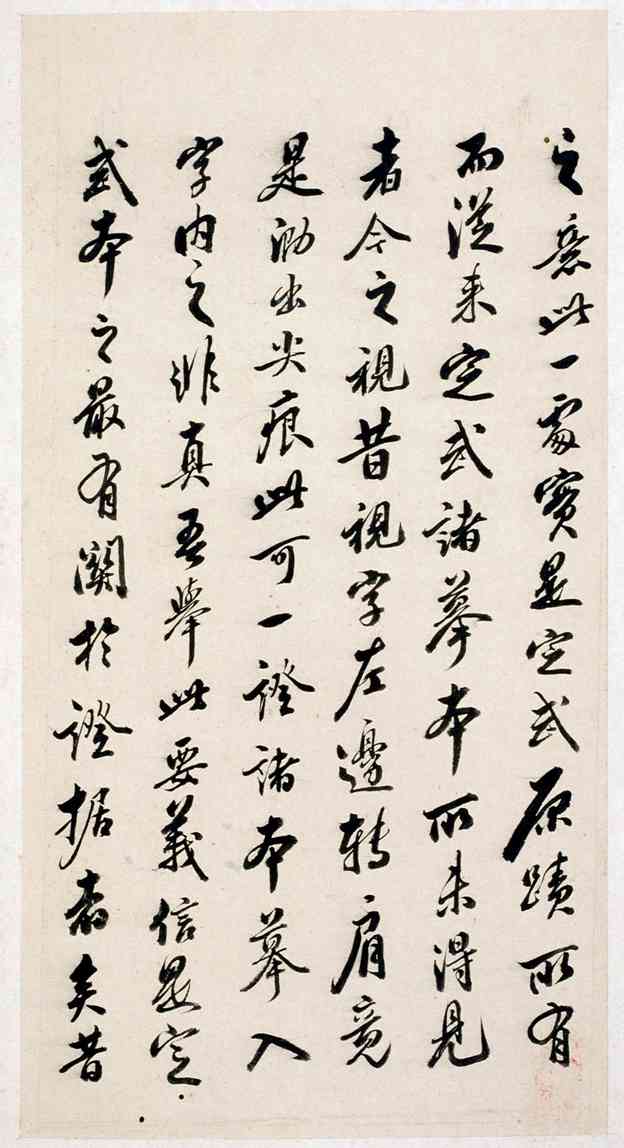 之意此一處實是定武原蹟所有
而從来定武諸摹本所未得見
者今之視昔視字左邊转肩竟
是泐出尖痕此可一證諸本摹入
字内之非真吾舉此要義信是定
武本之最有關於證据者矣昔